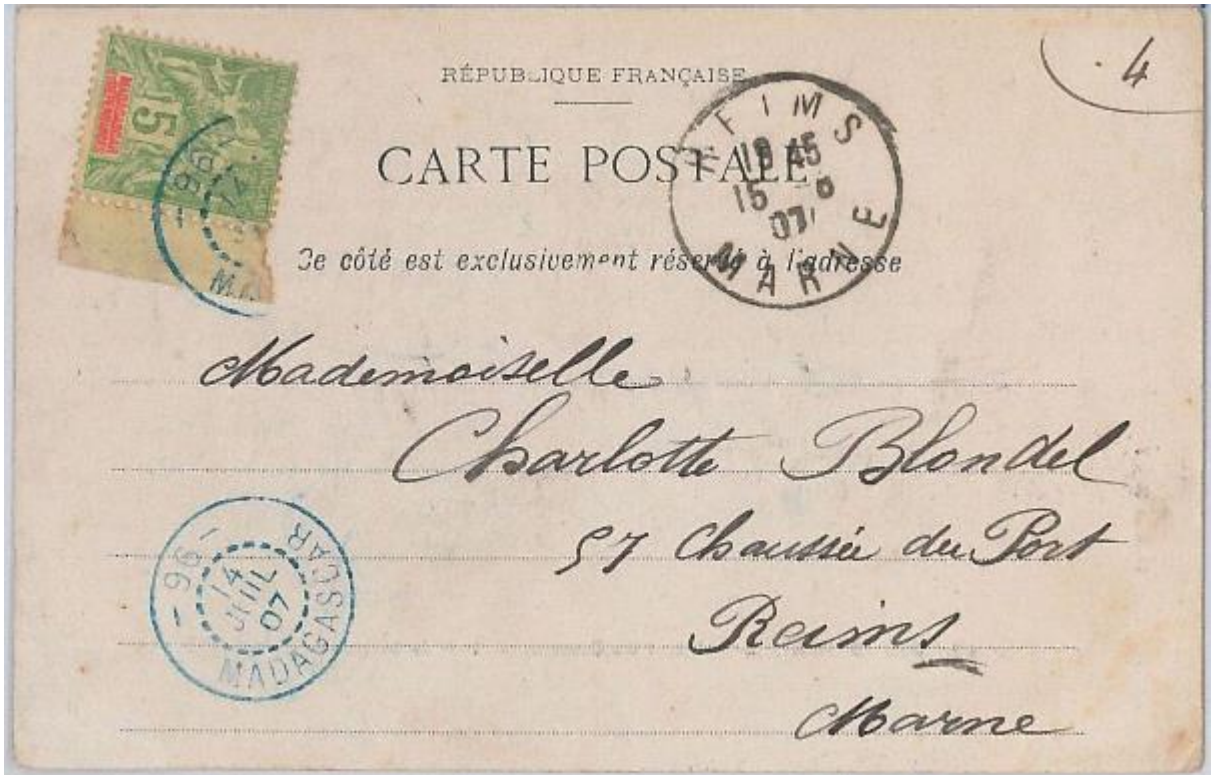 RÉPUBLIQUE FRANÇAISE
CARTE POSTALE
Ce côté est exclusivement réservé à l'adresse
4
5
96
14
REIMS
18 45
15 - 8
07
MARNE
Mademoiselle
Charlotte Blondel
57 Chaussée du Port
Reims
Marne
96
14
JUIL
07
MADAGASCAR